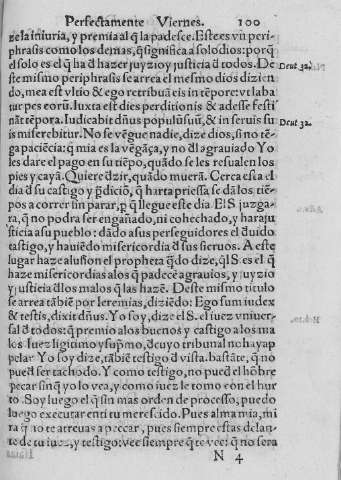 Perfectamente Viernes. 100
ze la iniuria, y premia al q̃ la padesce. Este es vn peri
phrasis como los demas, q̃ significa a solo dios: porq̃
el solo es el q̃ ha d̃ hazer juyzio y justicia d̃ todos. De
ste mismo periphrasis se arrea el mesmo dios dizien
do, mea est vltio & ego retribuā eis in tēpore: vt laba
tur pes eorū. Iuxta est dies perditionis & adesse festi
nāt tēpora. Iudicabit dñus populū suū, & in seruis su
is miserebitur. No se vēgue nadie, dize dios, si no tē-
ga paciēcia: q̃ mia es la vēgāça, y no d̃l agrauiado Yo
les dare el pago en su tiēpo, quādo se les resualen los
pies y cayā. Quiere d̃zir, quādo muerā. Cerca esta el
dia d̃ su castigo y p̃diciō, q̃ harta priessa se dā los tiēc
pos a correr sin parar, p̃ q̃ llegue este dia. El S. juzga-
ra, q̃ no podra ser engañado, ni cohechado, y hara ju
sticia a su pueblo: dādo a sus perseguidores el d̃uido
castigo, y hauiēdo misericordia d̃ sus sieruos. A este
lugar haze alusion el propheta q̃ do dize, q̃l S. es el q̃
haze misericordias a los q̃ padecē agrauios, y juyzio
y justicia d̃los malos q̃ las hazē. Deste mismo titulo
se arrea tābiē por Ieremias, diziēdo: Ego sum iudex
& testis, dixit dñus. Yo soy, dize el S. el iuez vniuer-
sal d̃ todos: q̃ premio a los buenos y castigo a los ma
los Iuez ligitimo y sup̃mo, d̃ cuyo tribunal no hay ap
pelar Yo soy dize, tābiē testigo d̃ vista. bastāte, q̃ no
pued̃ ser tachodo. Y como testigo, no pued̃ el hōbre
pecar sin q̃ yo lo vea, y como iuez le tomo con el hur
to. Soy luego el q̃ sin mas orden de processo, puedo
luego executar en ti tu merescido. Pues alma mia, mi
ra q̃ no te atreuas a peccar, pues siempre estas delan-
te de tu iuez, y testigo: vee siempre q̃ te vee: q̃ no sera
N 4
Deut 32.
Deut 32.